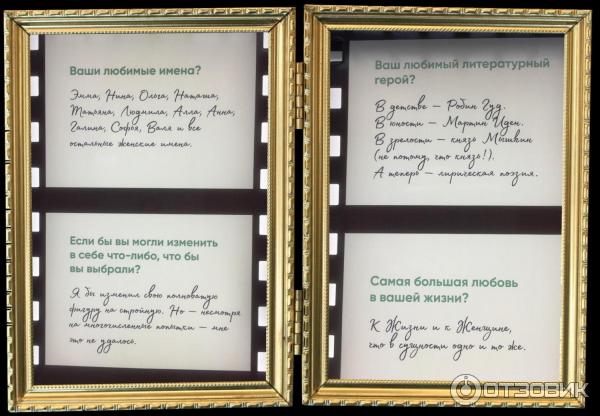 Ваши любимые имена?
Эмма, Нина, Ольга, Наташа,
Татьяна, Людмила, Алла, Анна,
Галина, Софья, Валя и все
остальные женские имена.
Если бы вы могли изменить
в себе что-либо, что бы
вы выбрали?
Я бы изменил свою полноватую
фигуру на стройную. Но — несмотря
на многочисленные попытки — мне
это не удалось.
Ваш любимый литературный
герой?
В детстве — Робин Гуд.
В юности — Мартин Иден.
В зрелости — князь Мышкин
(не потому, что князь!).
А теперь — лирическая поэзия.
Самая большая любовь
в вашей жизни?
К Жизни и к Женщине,
что в сущности одно и то же.
ОТЗОВИК